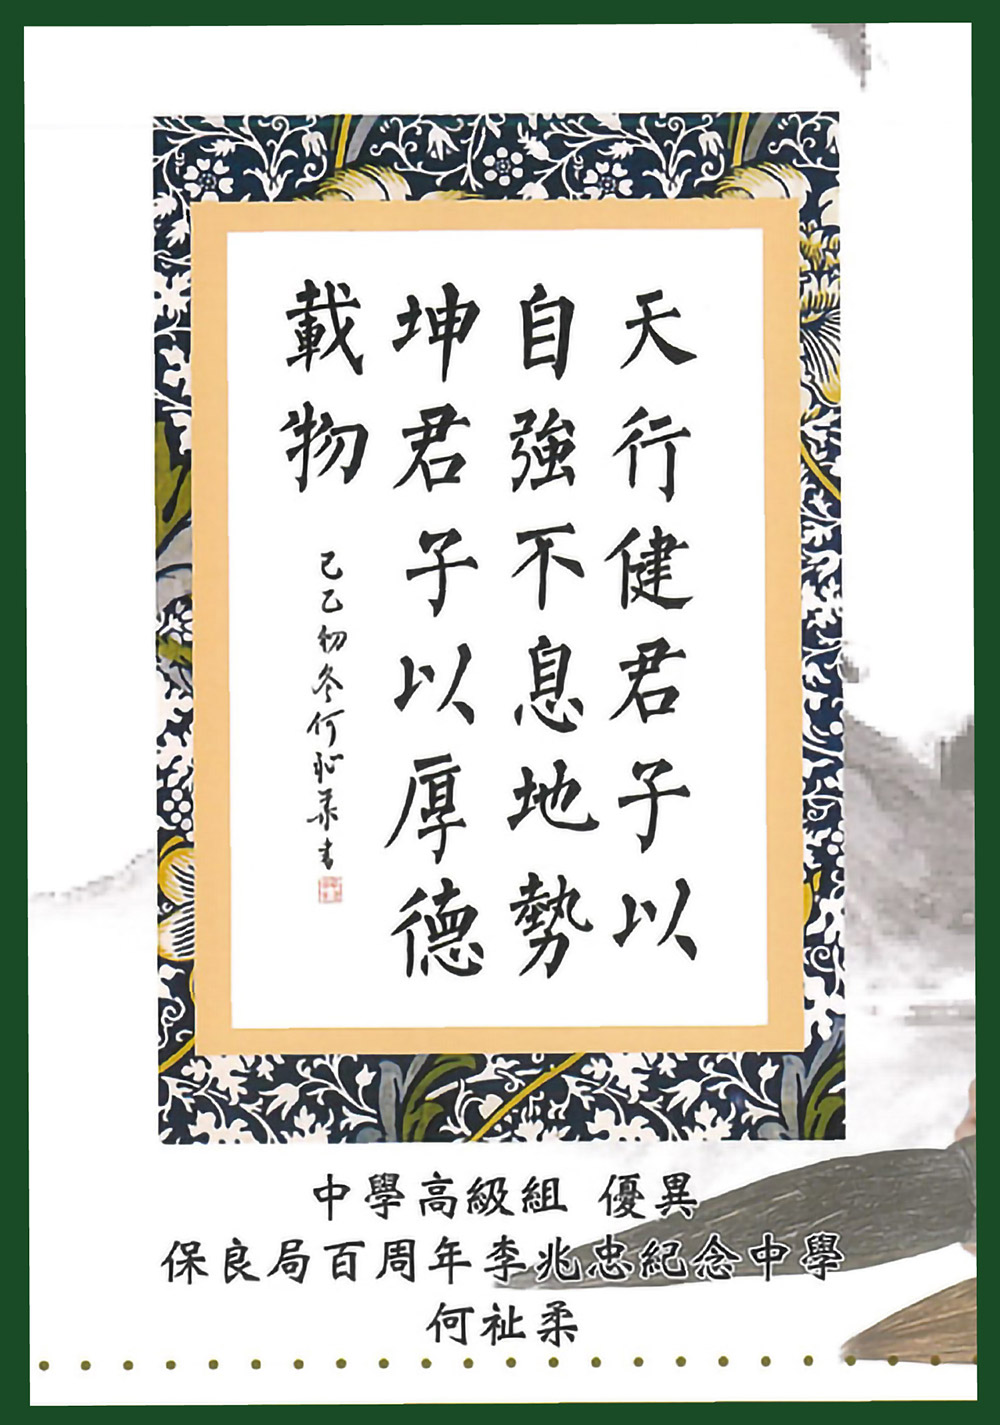 天行健君子以
自強不息地勢
坤君子以厚德
載物
己乙初冬何祉柔書
中學高級組 優異
保良局百周年李兆忠紀念中學
何祉柔